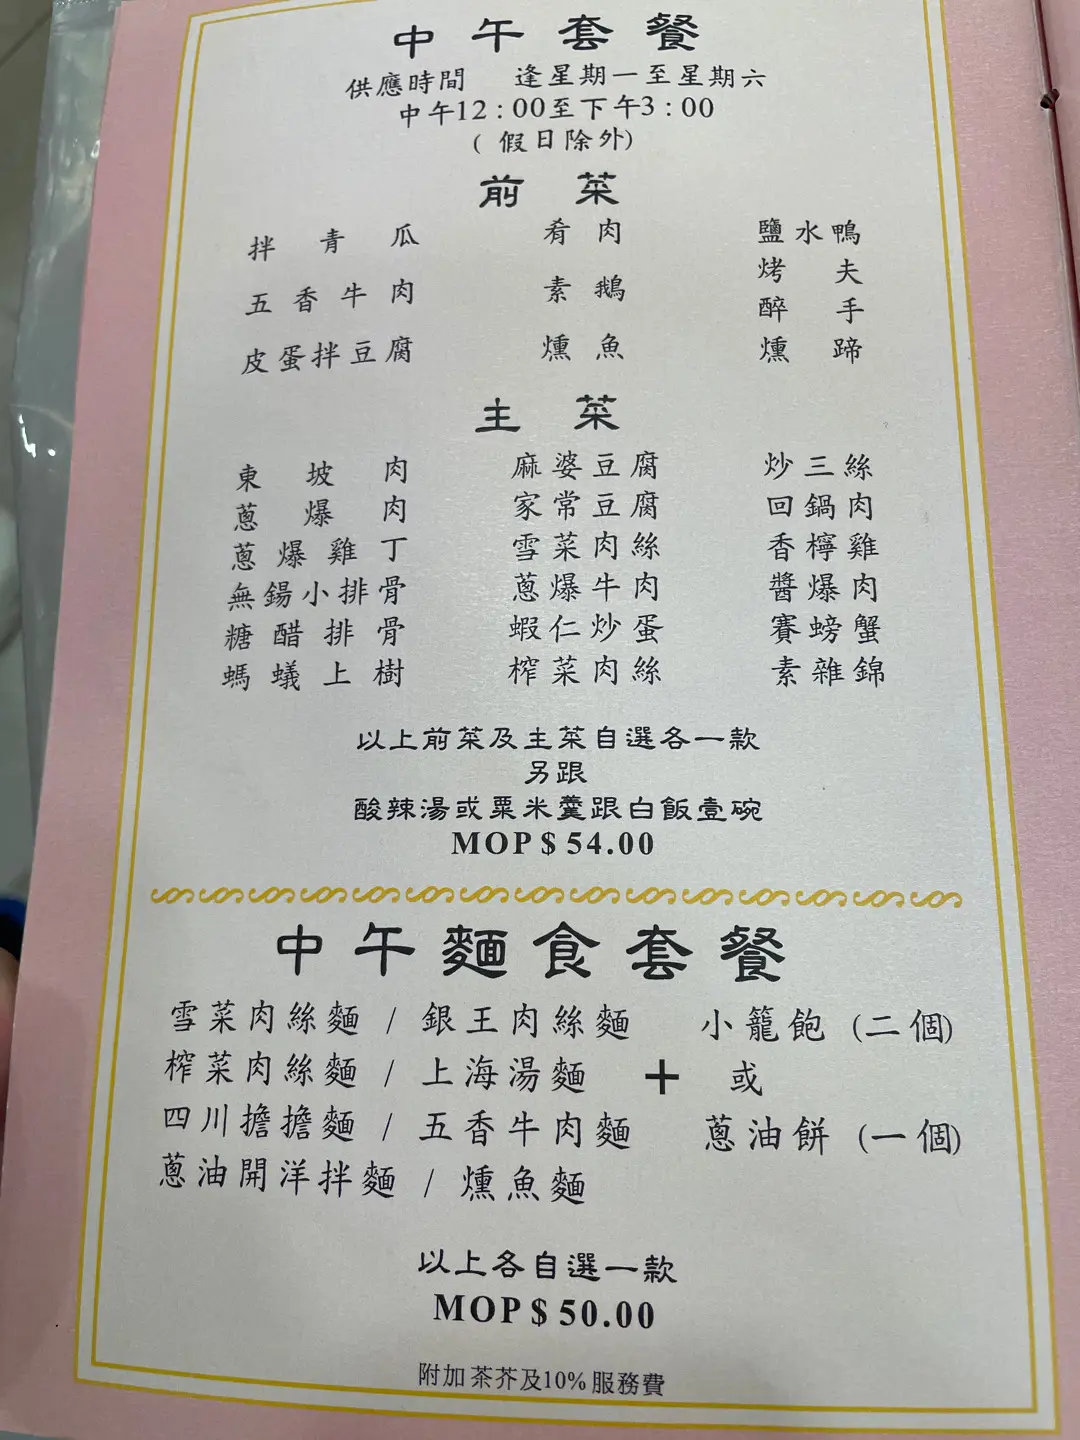 中午套餐
供應時間 逢星期一至星期六
中午12：00至下午3：00
( 假日除外)
前菜
拌青瓜 肴肉 鹽水鴨
烤夫
五香牛肉 素鵝 醉手
皮蛋拌豆腐 燻魚 燻蹄
主菜
東坡肉 麻婆豆腐 炒三絲
蔥爆肉 家常豆腐 回鍋肉
蔥爆雞丁 雪菜肉絲 香檸雞
無錫小排骨 蔥爆牛肉 醬爆肉
糖醋排骨 蝦仁炒蛋 賽螃蟹
螞蟻上樹 榨菜肉絲 素雜錦
以上前菜及主菜自選各一款
另跟
酸辣湯或粟米羹跟白飯壹碗
MOP$54.00
中午麵食套餐
雪菜肉絲麵 / 銀王肉絲麵 小籠飽 (二個)
榨菜肉絲麵 / 上海湯麵 + 或
四川擔擔麵 / 五香牛肉麵 蔥油餅 (一個)
蔥油開洋拌麵 / 燻魚麵
以上各自選一款
MOP$50.00
附加茶芥及10%服務費